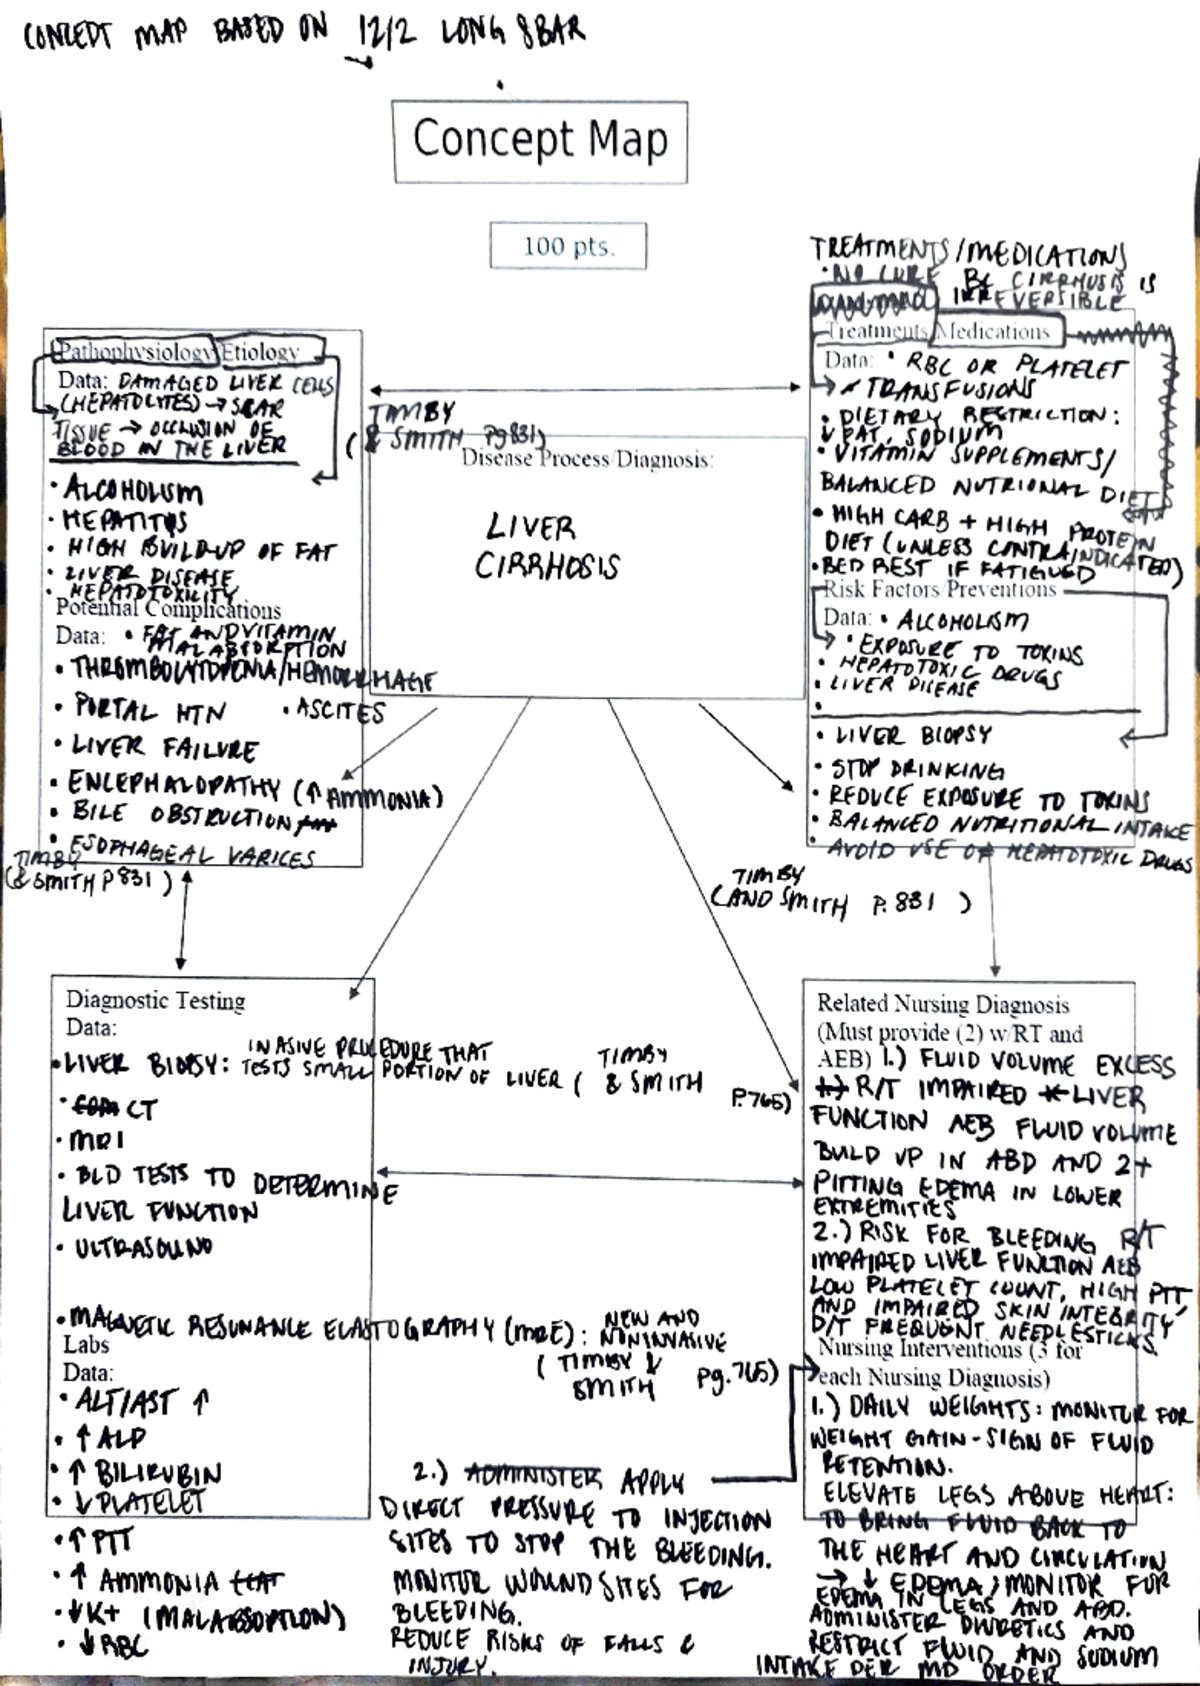 CONCEPT MAP BASED ON 12/2 LONG SBAR
Concept Map
100 pts.
TREATMENTS/MEDICATIONS
• NO CURE BC CIRRHOSIS IS
IRREVERSIBLE
Pathophysiology/Etiology
Data: DAMAGED LIVER CELLS
(HEPATOCYTES) → SCAR
TISSUE → OCCLUSION OF
BLOOD IN THE LIVER
• ALCOHOLISM
• HEPATITIS
• HIGH BUILD-UP OF FAT
• LIVER DISEASE
• HEPATOTOXICITY
Potential Complications
Data: • FAT AND VITAMIN
MALABSORPTION
• THROMBOCYTOPENIA/HEMORRHAGE
• PORTAL HTN • ASCITES
• LIVER FAILURE
• ENCEPHALOPATHY (↑ AMMONIA)
• BILE OBSTRUCTION
• ESOPHAGEAL VARICES
TIMBY
(& SMITH P 831)
TIMBY
(& SMITH Pg 831)
Disease Process/Diagnosis:
LIVER
CIRRHOSIS
Treatments/Medications
Data: • RBC OR PLATELET
TRANSFUSIONS
• DIETARY RESTRICTION:
↓ FAT, SODIUM
• VITAMIN SUPPLEMENTS/
BALANCED NUTRIONAL DIET
• HIGH CARB + HIGH PROTEIN
DIET (UNLESS CONTRAINDICATED)
• BED REST IF FATIGUED
Risk Factors/Preventions
Data: • ALCOHOLISM
• EXPOSURE TO TOXINS
• HEPATOTOXIC DRUGS
• LIVER DISEASE
•
• LIVER BIOPSY
• STOP DRINKING
• REDUCE EXPOSURE TO TOXINS
• BALANCED NUTRITIONAL INTAKE
• AVOID USE OF HEPATOTOXIC DRUGS
TIMBY
(AND SMITH P. 831 )
Diagnostic Testing
Data:
• LIVER BIOPSY: INASIVE PROCEDURE THAT
TESTS SMALL PORTION OF LIVER ( TIMBY
& SMITH P. 765)
• CT
• MRI
• BLD TESTS TO DETERMINE
LIVER FUNCTION
• ULTRASOUND
• MAGNETIC RESONANCE ELASTOGRAPHY (MRE): NEW AND
NONINVASIVE
( TIMBY &
SMITH Pg. 765)
Labs
Data:
• ALT/AST ↑
• ↑ ALP
• ↑ BILIRUBIN
• ↓ PLATELET
• ↑ PTT
• ↑ AMMONIA
• ↓ K+ (MALABSOPTION)
• ↓ RBC
Related Nursing Diagnosis
(Must provide (2) w/RT and
AEB) 1.) FLUID VOLUME EXCESS
R/T IMPAIRED LIVER
FUNCTION AEB FLUID VOLUME
BUILD UP IN ABD AND 2+
PITTING EDEMA IN LOWER
EXTREMITIES
2.) RISK FOR BLEEDING R/T
IMPAIRED LIVER FUNCTION AEB
LOW PLATELET COUNT, HIGH PTT
AND IMPAIRED SKIN INTEGRITY
D/T FREQUENT NEEDLESTICKS.
Nursing Interventions (3 for
each Nursing Diagnosis)
1.) DAILY WEIGHTS: MONITOR FOR
WEIGHT GAIN - SIGN OF FLUID
RETENTION.
ELEVATE LEGS ABOVE HEART:
TO BRING FLUID BACK TO
THE HEART AND CIRCULATION
→ ↓ EDEMA; MONITOR FOR
EDEMA IN LEGS AND ABD.
ADMINISTER DIURETICS AND
RESTRICT FLUID AND SODIUM
INTAKE PER MD ORDER
2.) ADMINISTER APPLY
DIRECT PRESSURE TO INJECTION
SITES TO STOP THE BLEEDING.
MONITOR WOUND SITES FOR
BLEEDING.
REDUCE RISKS OF FALLS &
INJURY.